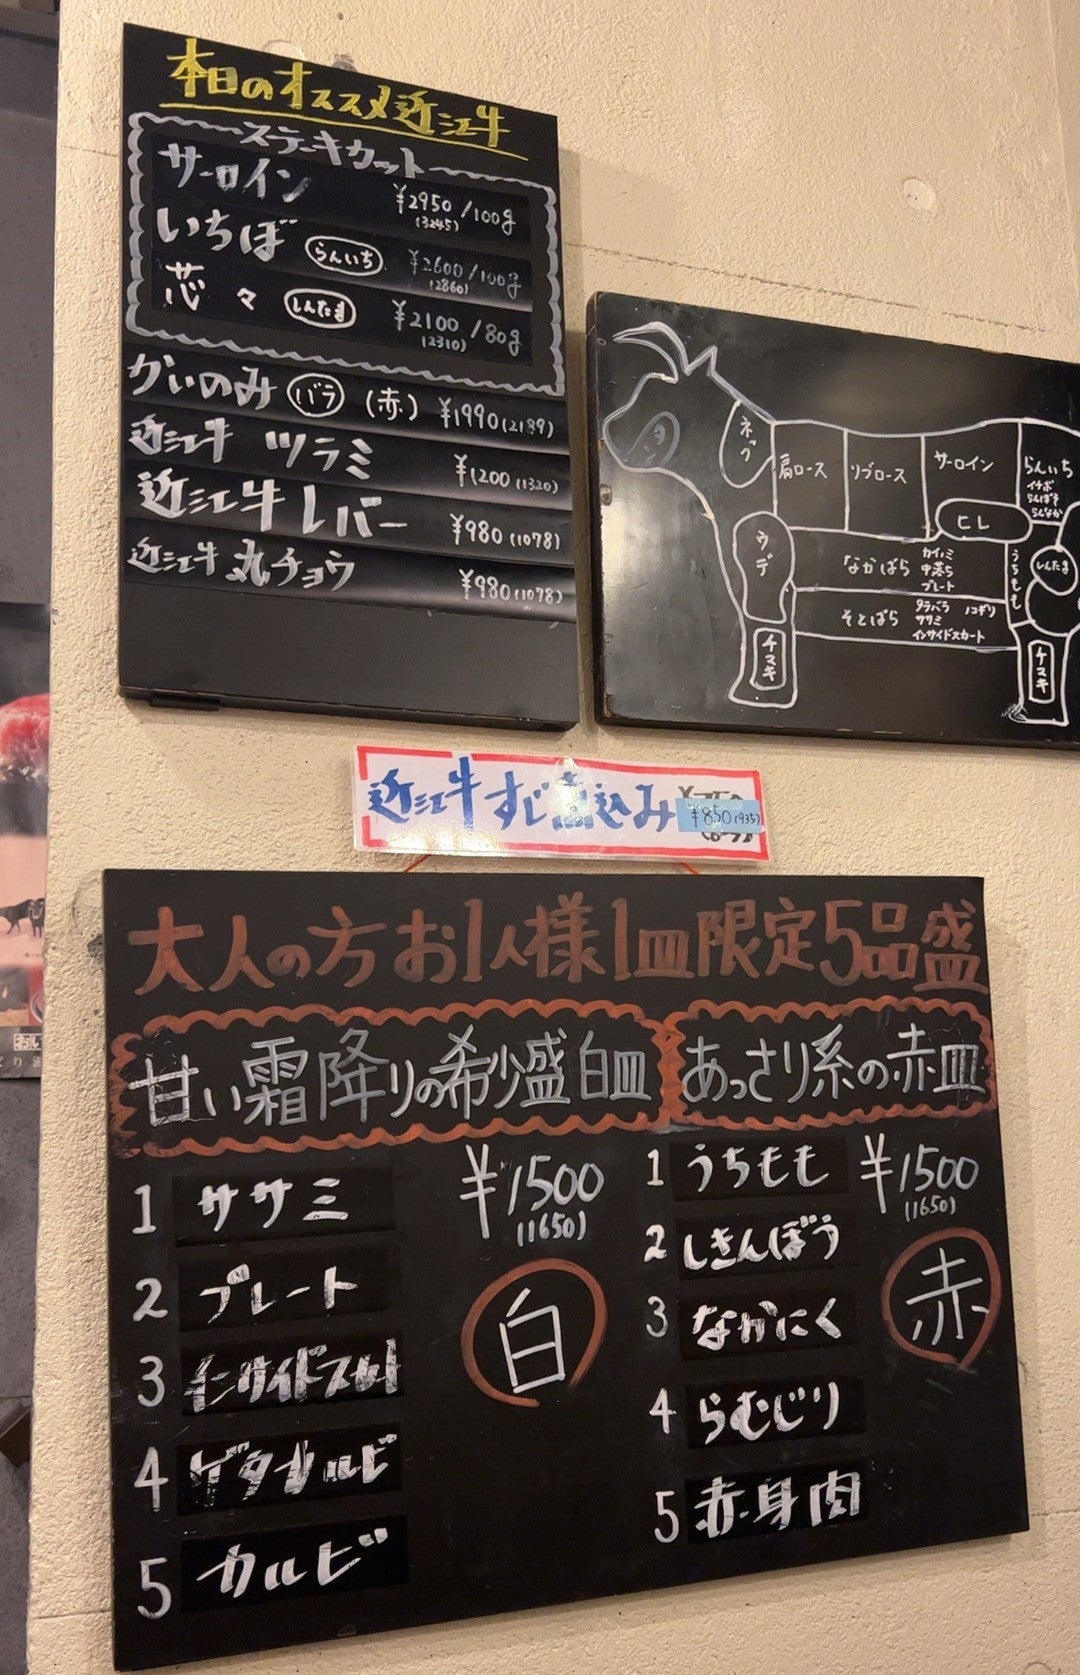 本日のオススメ近江牛
ステーキカット
サーロイン ¥2950/100g
(3245)
いちぼ らんいち ¥2600/100g
(2860)
芯々 しんたま ¥2100/80g
(2310)
かいのみ バラ (赤) ¥1990(2189)
近江牛 ツラミ ¥1200(1320)
近江牛レバー ¥980(1078)
近江牛 丸チョウ ¥980(1078)
ネック
肩ロース
リブロース
サーロイン
らんいち
イチボ
らんぼそ
らんなか
ヒレ
ウデ
なかばら
カイノミ
中落ち
プレート
うちもも
しんたま
そとばら
タテバラ ノコギリ
ササミ
インサイドスカート
チマキ
チマキ
近江牛すじ煮込み ¥850(935)
大人の方お1人様1皿限定5品盛
甘い霜降りの希少盛白皿
¥1500
(1650)
白
1 ササミ
2 プレート
3 インサイドスカート
4 ゲタカルビ
5 カルビ
あっさり系の赤皿
¥1500
(1650)
赤
1 うちもも
2 しきんぼう
3 なかにく
4 らむじり
5 赤身肉